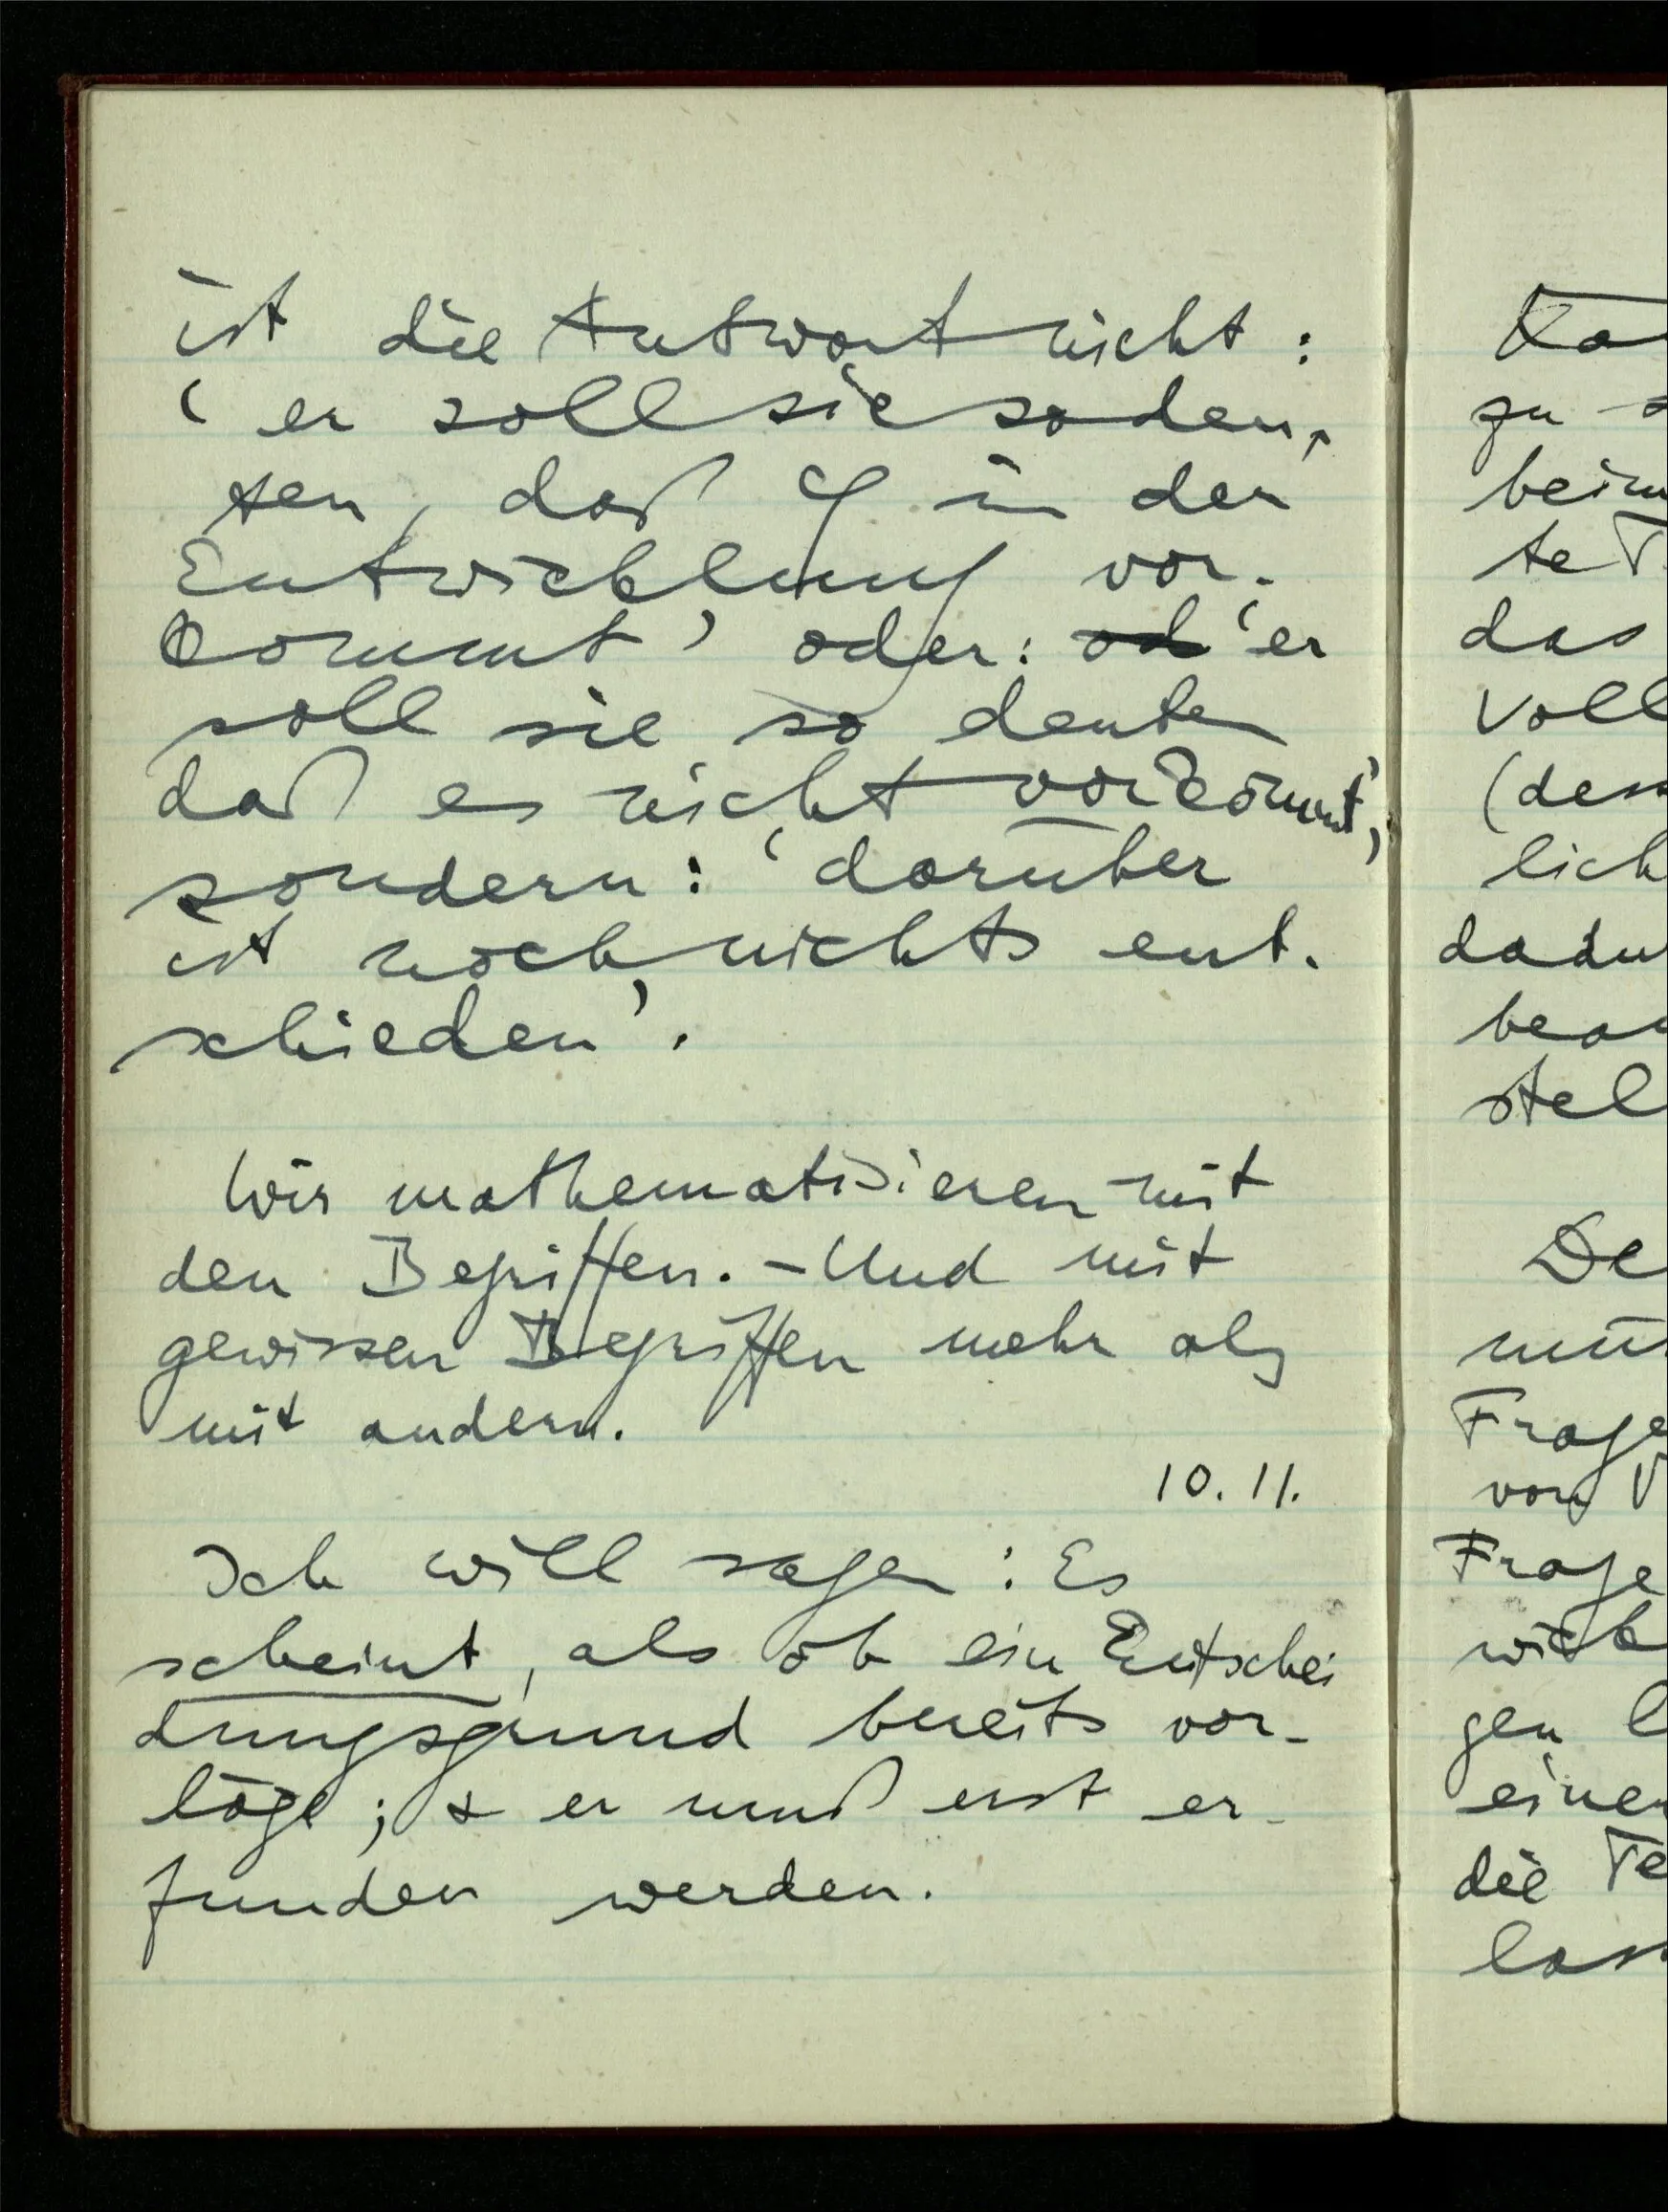 ist die Antwort nicht :
‘ er soll sie so deu-
ten, daß φ in der
Entwicklung vor-
kommt’ oder: od ‘er
soll sie so deuten
daß es nicht vorkommt’,
sondern : ‘darüber
ist noch nichts ent-
schieden’.
Wir mathematisieren mit
den Begriffen. – Und mit
gewissen Begriffen mehr als
mit andern.
10. 11.
Ich will sagen : Es
scheint, als ob ein Entschei
dungsgrund bereits vor-
läge ; & er muß erst er-
funden werden.
zu
das
voll
(dess
lich
stel
De
Frage
von
Frage
gen
einer
die Te